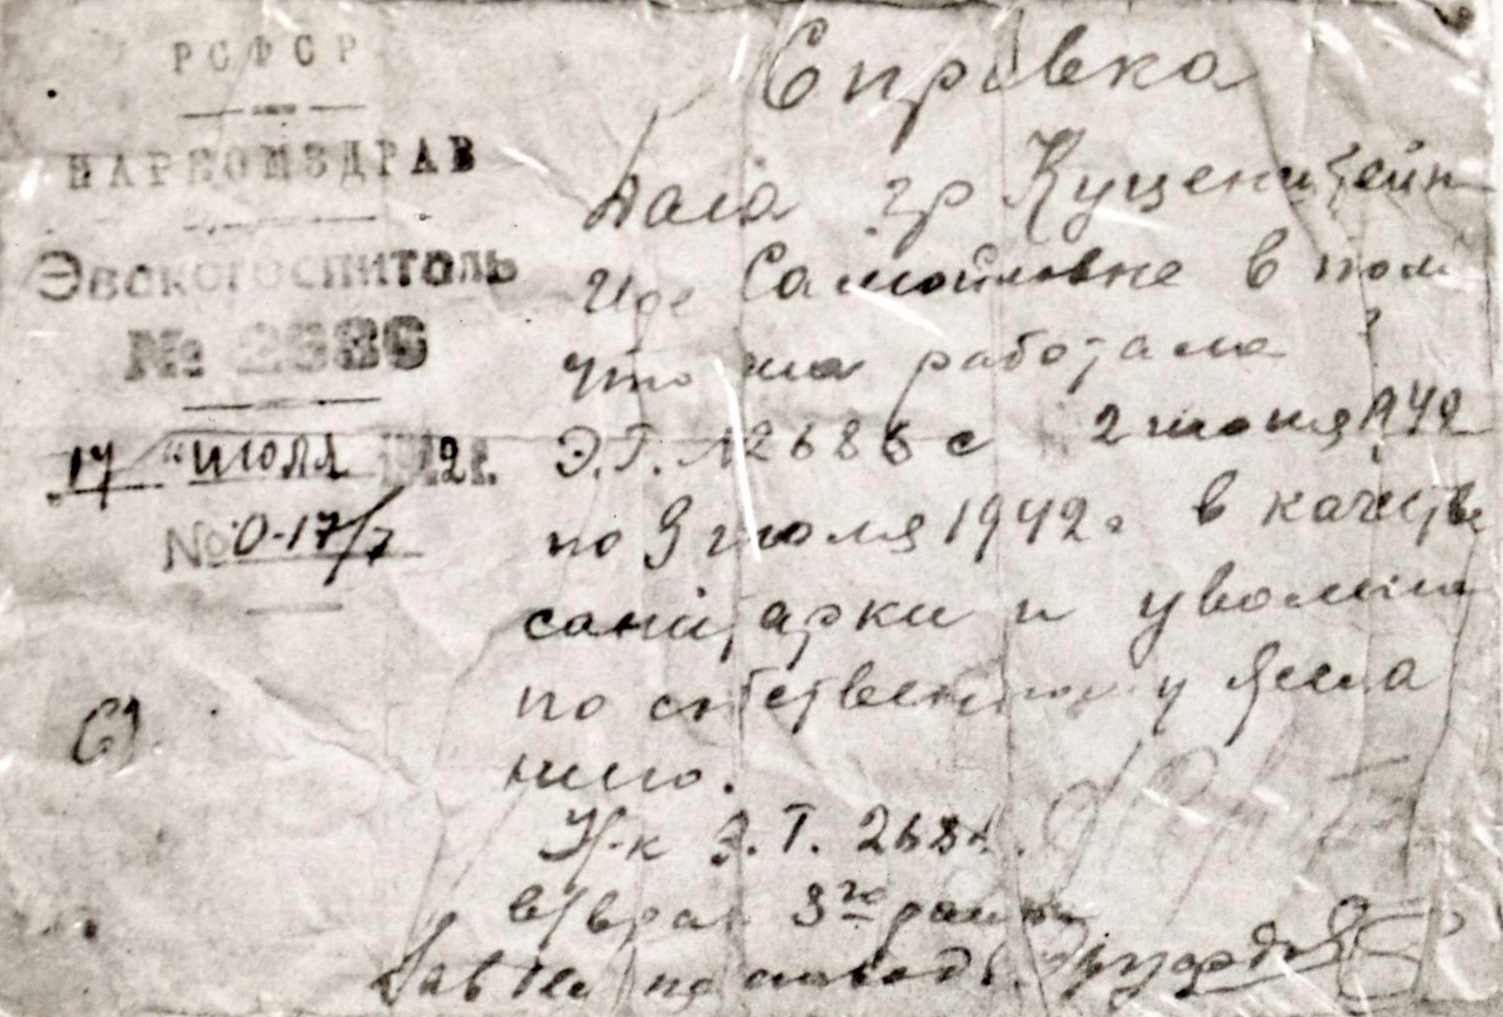 РСФСР
НАРКОМЗДРАВ
Эвокогоспиталь
№ 2686
17 "июля 1942 г.
№ 0-17/7
Справка
Дана гр
Иде Самойловне в том
что она работала
Э.Г. №2686 с 2 июня 1942
по 9 июля 1942 г в качестве
санитарки и уволена
по собственному жела
нию.
Н-к Э.Г. 2686.
в/врач 3го ранга